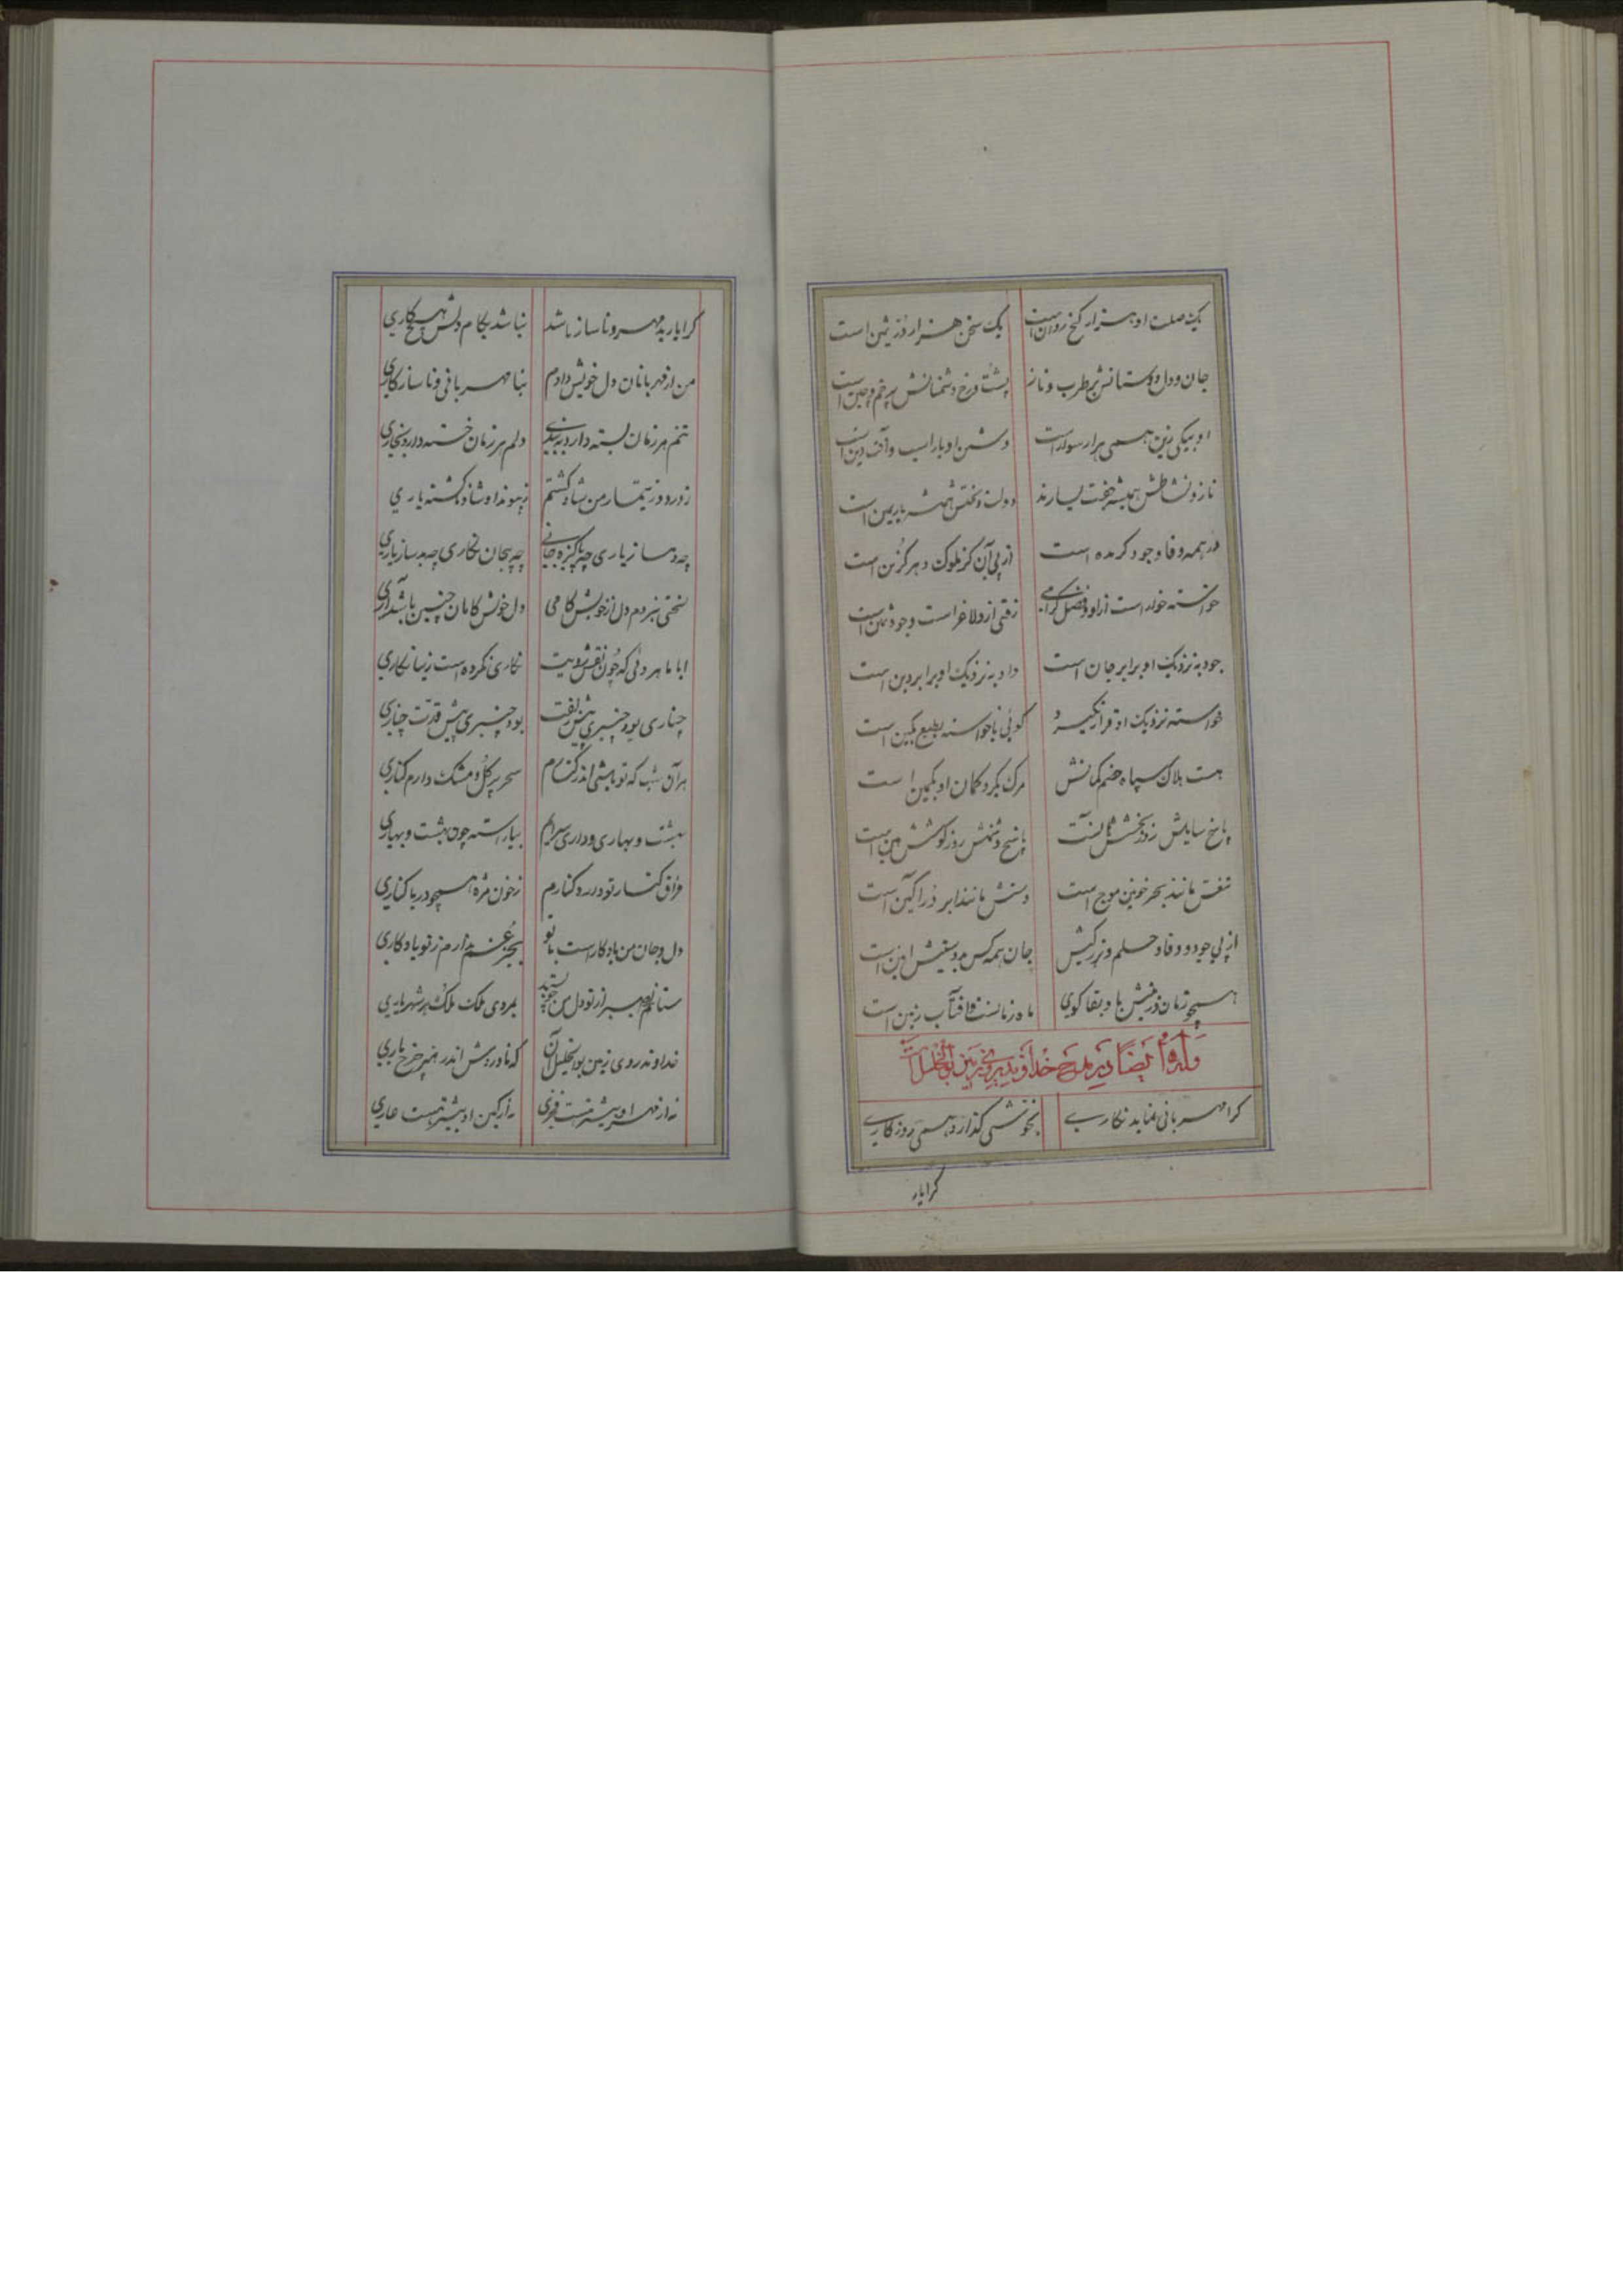 یک صلت او هزار گنج روان است یک سخن هزار در ثمین است
جان و دل دوستانش پر طرب و ناز پشت و رخ دشمنانش پر خم و چین است
او بیکی زین همی هزار سوار است دشمن او را
ناز و نشاطش همیشه جفت یسارند دولت و بختش همیشه یار یمین است
در همه وفا وجود کرده است از پی آن کز ملوک دهر گزین است
خواسته خوار است از او و فضل گرامی زفتی از او لاغر است وجود سمین است
جود به نزدیک او برابر جان است داد به نزدیک او برابر دین است
خواسته نزدیک او قرار نگیرد گوئی با خواسته بطبع بکین است
هست هلاک سپاه خم کمانش مرگ بگرد کمان او بکمین است
پاسخ سایلش روز بخشش پاسخ دشمنش روز کوشش هین است
تیغش مانند بحر خونین موج است دستش مانند ابر در آگین است
از پی جود و وفا و حلم و بزرگیش جان همه کس بدوستیش رهین است
همچو زمان زمینش باد بقا کوی ماه زمانست و آفتاب زمین است
وله ایضا در مدح خداوند روی زمین بوالخلیل است
کرا مهربانی نماید نگاری بخوشی گذارد همی روزگاری
کرایار
کرا یار بدمهر و ناساز باشد نباشد بکام دلش هیچ کاری
من از مهربانان دل خویش دادم بنامهربانی و ناسازکاری
تنم هر زمان بسته دارد به بندی دلم هر زمان خسته دارد بخاری
ز درد و ز تیمار من شاد گشتم ز پیوند او شاد گشته باری
چه دمساز یاری چه پاکیزه جانی چه بیجان نگاری چه بد ساز یاری
بسختی نبردم دل از خویش کامی دل خویش کامان چنین باشد آری
ایا ماهروئی که چون نقش رویت نگاری نکرده است زیبا نگاری
چناری بود چنبری پیش زلفت بود چنبری پیش قدت چناری
هر آن شب که تو باشی اندر کنارم سحر پر گل و مشک دارم کناری
بهشت و بهاری و داری سرایم بیاراسته چون بهشت و بهاری
فراق کنار تو دارد کنارم ز خون مژه همچو دریا کناری
دل و جان من یادگار است با تو بجز غم ندارم ز تو یادگاری
ستانم بمهر از تو دل بمردی ملک ملک هر شهریاری
خداوند روی زمین بوالخلیل آن که ناوردش اندر هنر چرخ باری
نه از مهر او بیشتر هست فخری نه از کین او بیشتر هست عاری